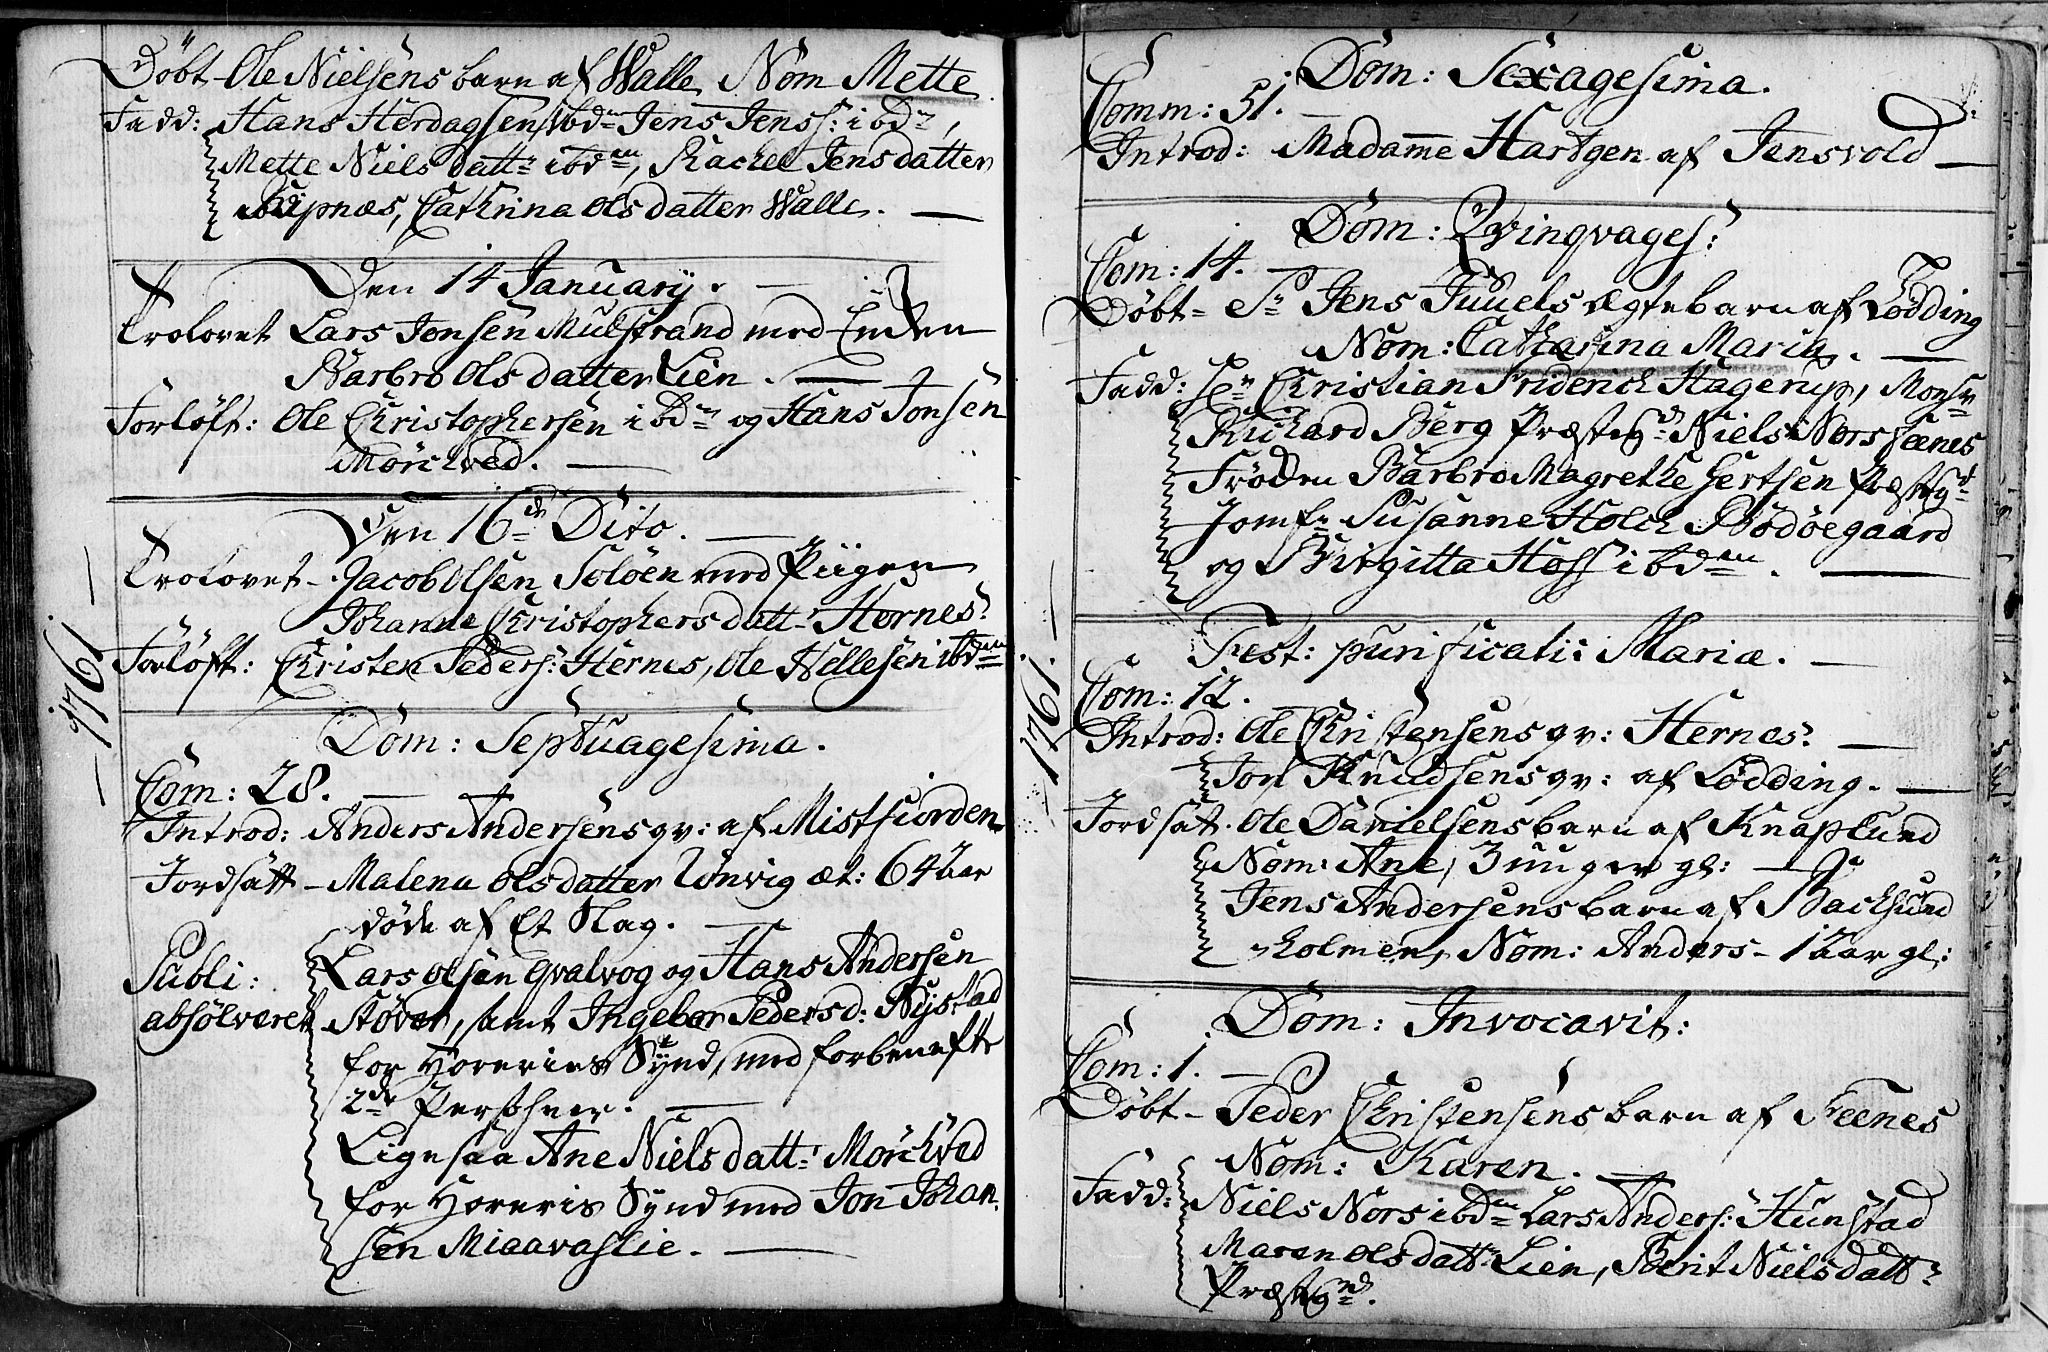 Döbt Ole Nielsens barn af Walle Nom Mette
Fadd: Hans Herdagsen ibdm Jens Jenss: ibdm,
Mette Niels datt: ibdem, Rachel Jensdatter
Bupnæs, Cathrina Olsdatter Walle. —
Den 14 January. —
Trolovet Lars Jonsen Mulstrand med Enken
Barbro Olsdatter Lien. —
Forlöft: Ole Christophersen ibdm og Hans Jonsen
Mörchved. —
1761
Den 16de Dito. —
Trolovet - Jacob Olsen Solöen med Piigen
Johanne Christophersdatt: Hernes.
Forlöft: Christen Peders: Hernes, Ole Hellesen ibdem
Dom: Septuagesima.
Com: 28. —
Introd: Anders Andersens qv: af Mistfiorden
Jordsatt - Malena Olsdatter Lönvig æt: 64 Aar
döde af Et Slag. —
Publi: Lars Olsen Qvalvog og Hans Andersen
absolveret Stöver, samt Ingebor Pedersd: Nystad
for Horeries Synd, med forbenefte
2de Personer. —
Ligesaa Ane Niels datt: Mörchved
for Horeris Synd med Jon Johan
sen Miaavaslie. —
Dom: Sexagesima.
Comm: 51. —
Introd: Madame Hartgen af Jensvold —
Dom: Qvinqvages:
Com: 14. —
Döbt - Sr Jens Juuels ægte barn af Lödding
Nom: Catharina Maria. —
Fadd: Sr Christian Friderich Hagerup, Monsr
Richard Berg Præstegd Niels Nors Seenes
Fröken Barbro Magrethe Gertsen Præstegd
Jomfr Susanne Holch Bodöegaard
og Birgitta Hoss ibdem. —
1761.
Fest: purificati: Mariæ. —
Com: 12. —
Introd: Ole Christensens qv: Hernes. —
Jon Knudsens qv: af Lödding. —
Jordsat. Ole Danielsens barn af Knaplund
Nom: Ane, 3 uuger gl: —
Jens Andersens barn af Backsund
holmen, Nom: Anders - 1 Aar gl:
Dom: Invocavit:
Com: 1. —
Döbt - Peder Christensens barn af Feenes
Nom: Karen. —
Fadd: Niels Nors ibdm Lars Anders: Hunstad
Maren Olsdatt: Lien, Berit Nielsdatt:
Præstegd.